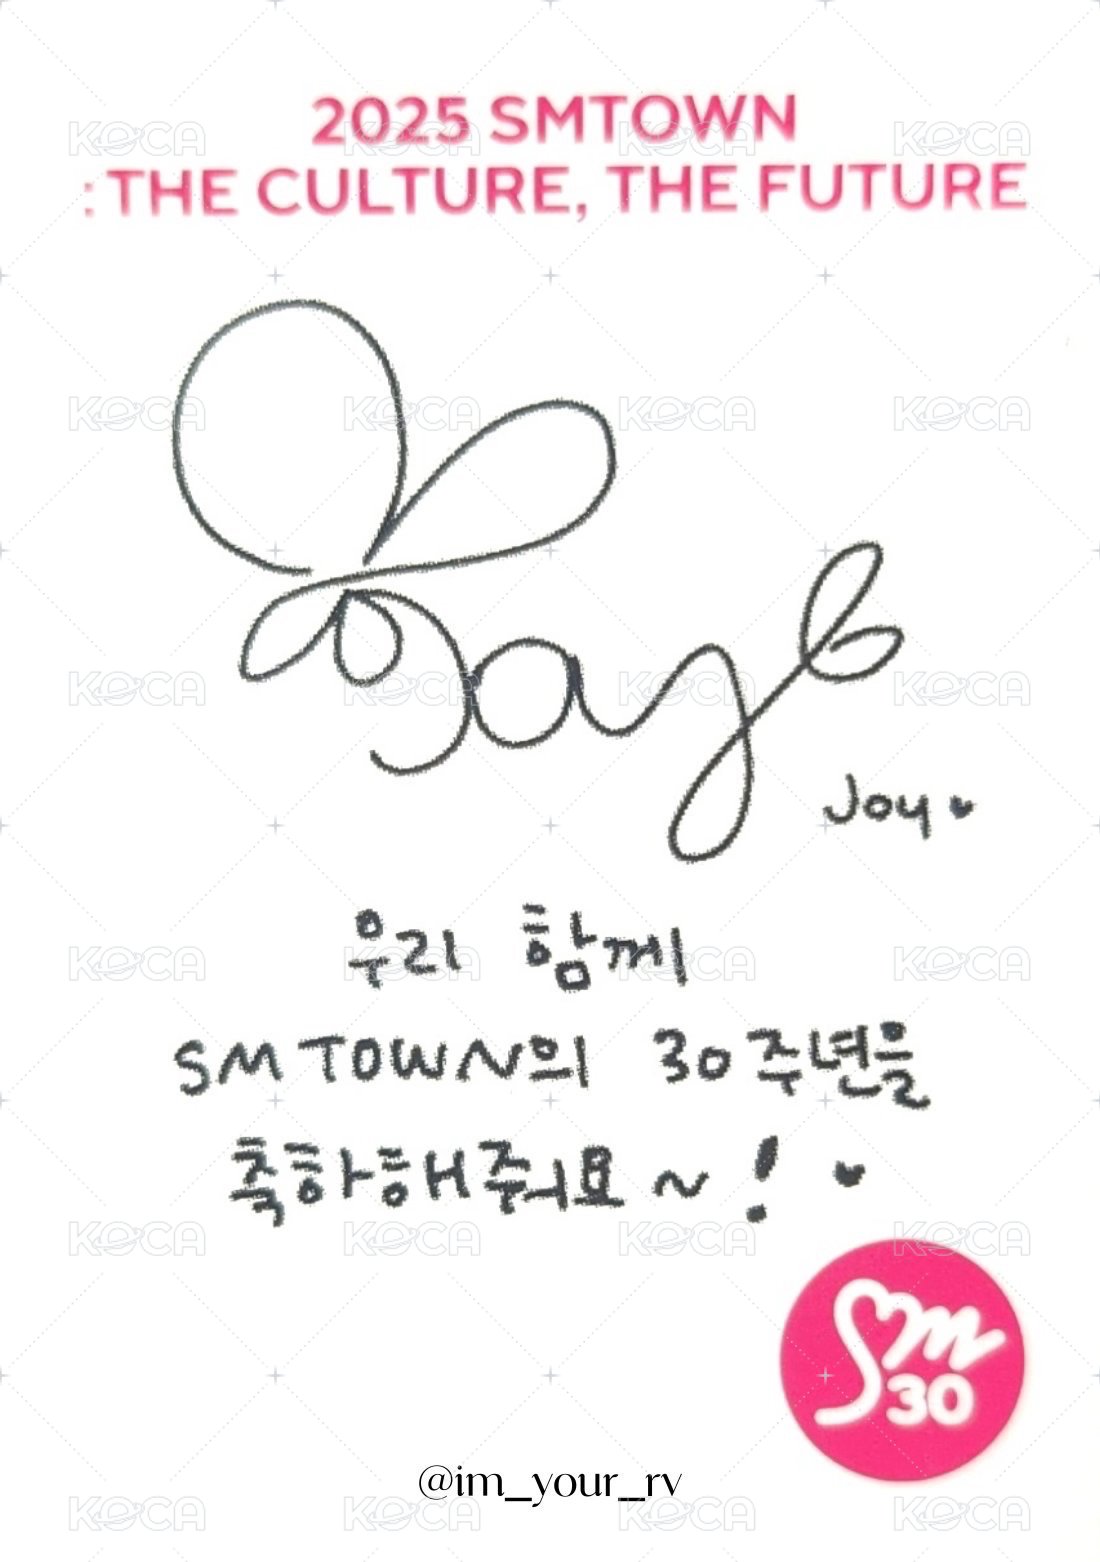 2025 SMTOWN
: THE CULTURE, THE FUTURE
Joy
우리 함께
SMTOWN의 30주년을
축하해줘요~!
Sm
30
@im_your_rv
KOCA